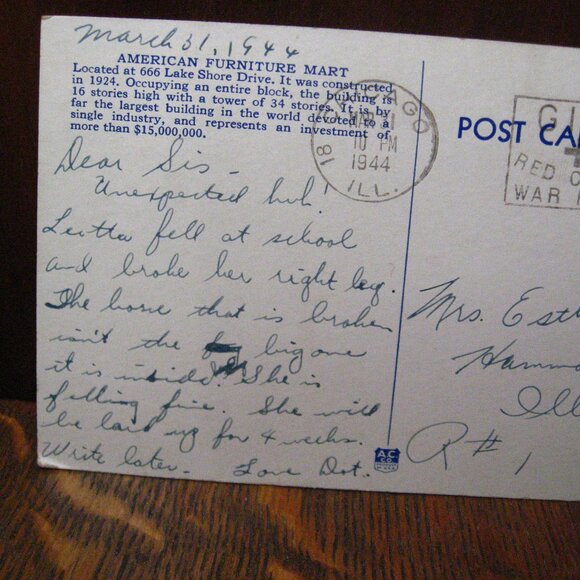 March 31, 1944
AMERICAN FURNITURE MART
Located at 666 Lake Shore Drive. It was constructed
in 1924. Occupying an entire block, the building is
16 stories high with a tower of 34 stories. It is by
far the largest building in the world devoted to a
single industry, and represents an investment of
more than $15,000,000.
Dear Sis -
Unexpected huh!
Leitta fell at school
and broke her right leg.
The bone that is broken
isn't the big one
it is inside. She is
felling fine. She will
be laid up for 4 weeks.
Write later - Love Dot.
CHICAGO
MAR 31
10 PM
1944
ILL.
18
POST CA
GI
RED C
WAR
Mrs. Esth
Hamm
Ill
R # 1
A.C.
CO.